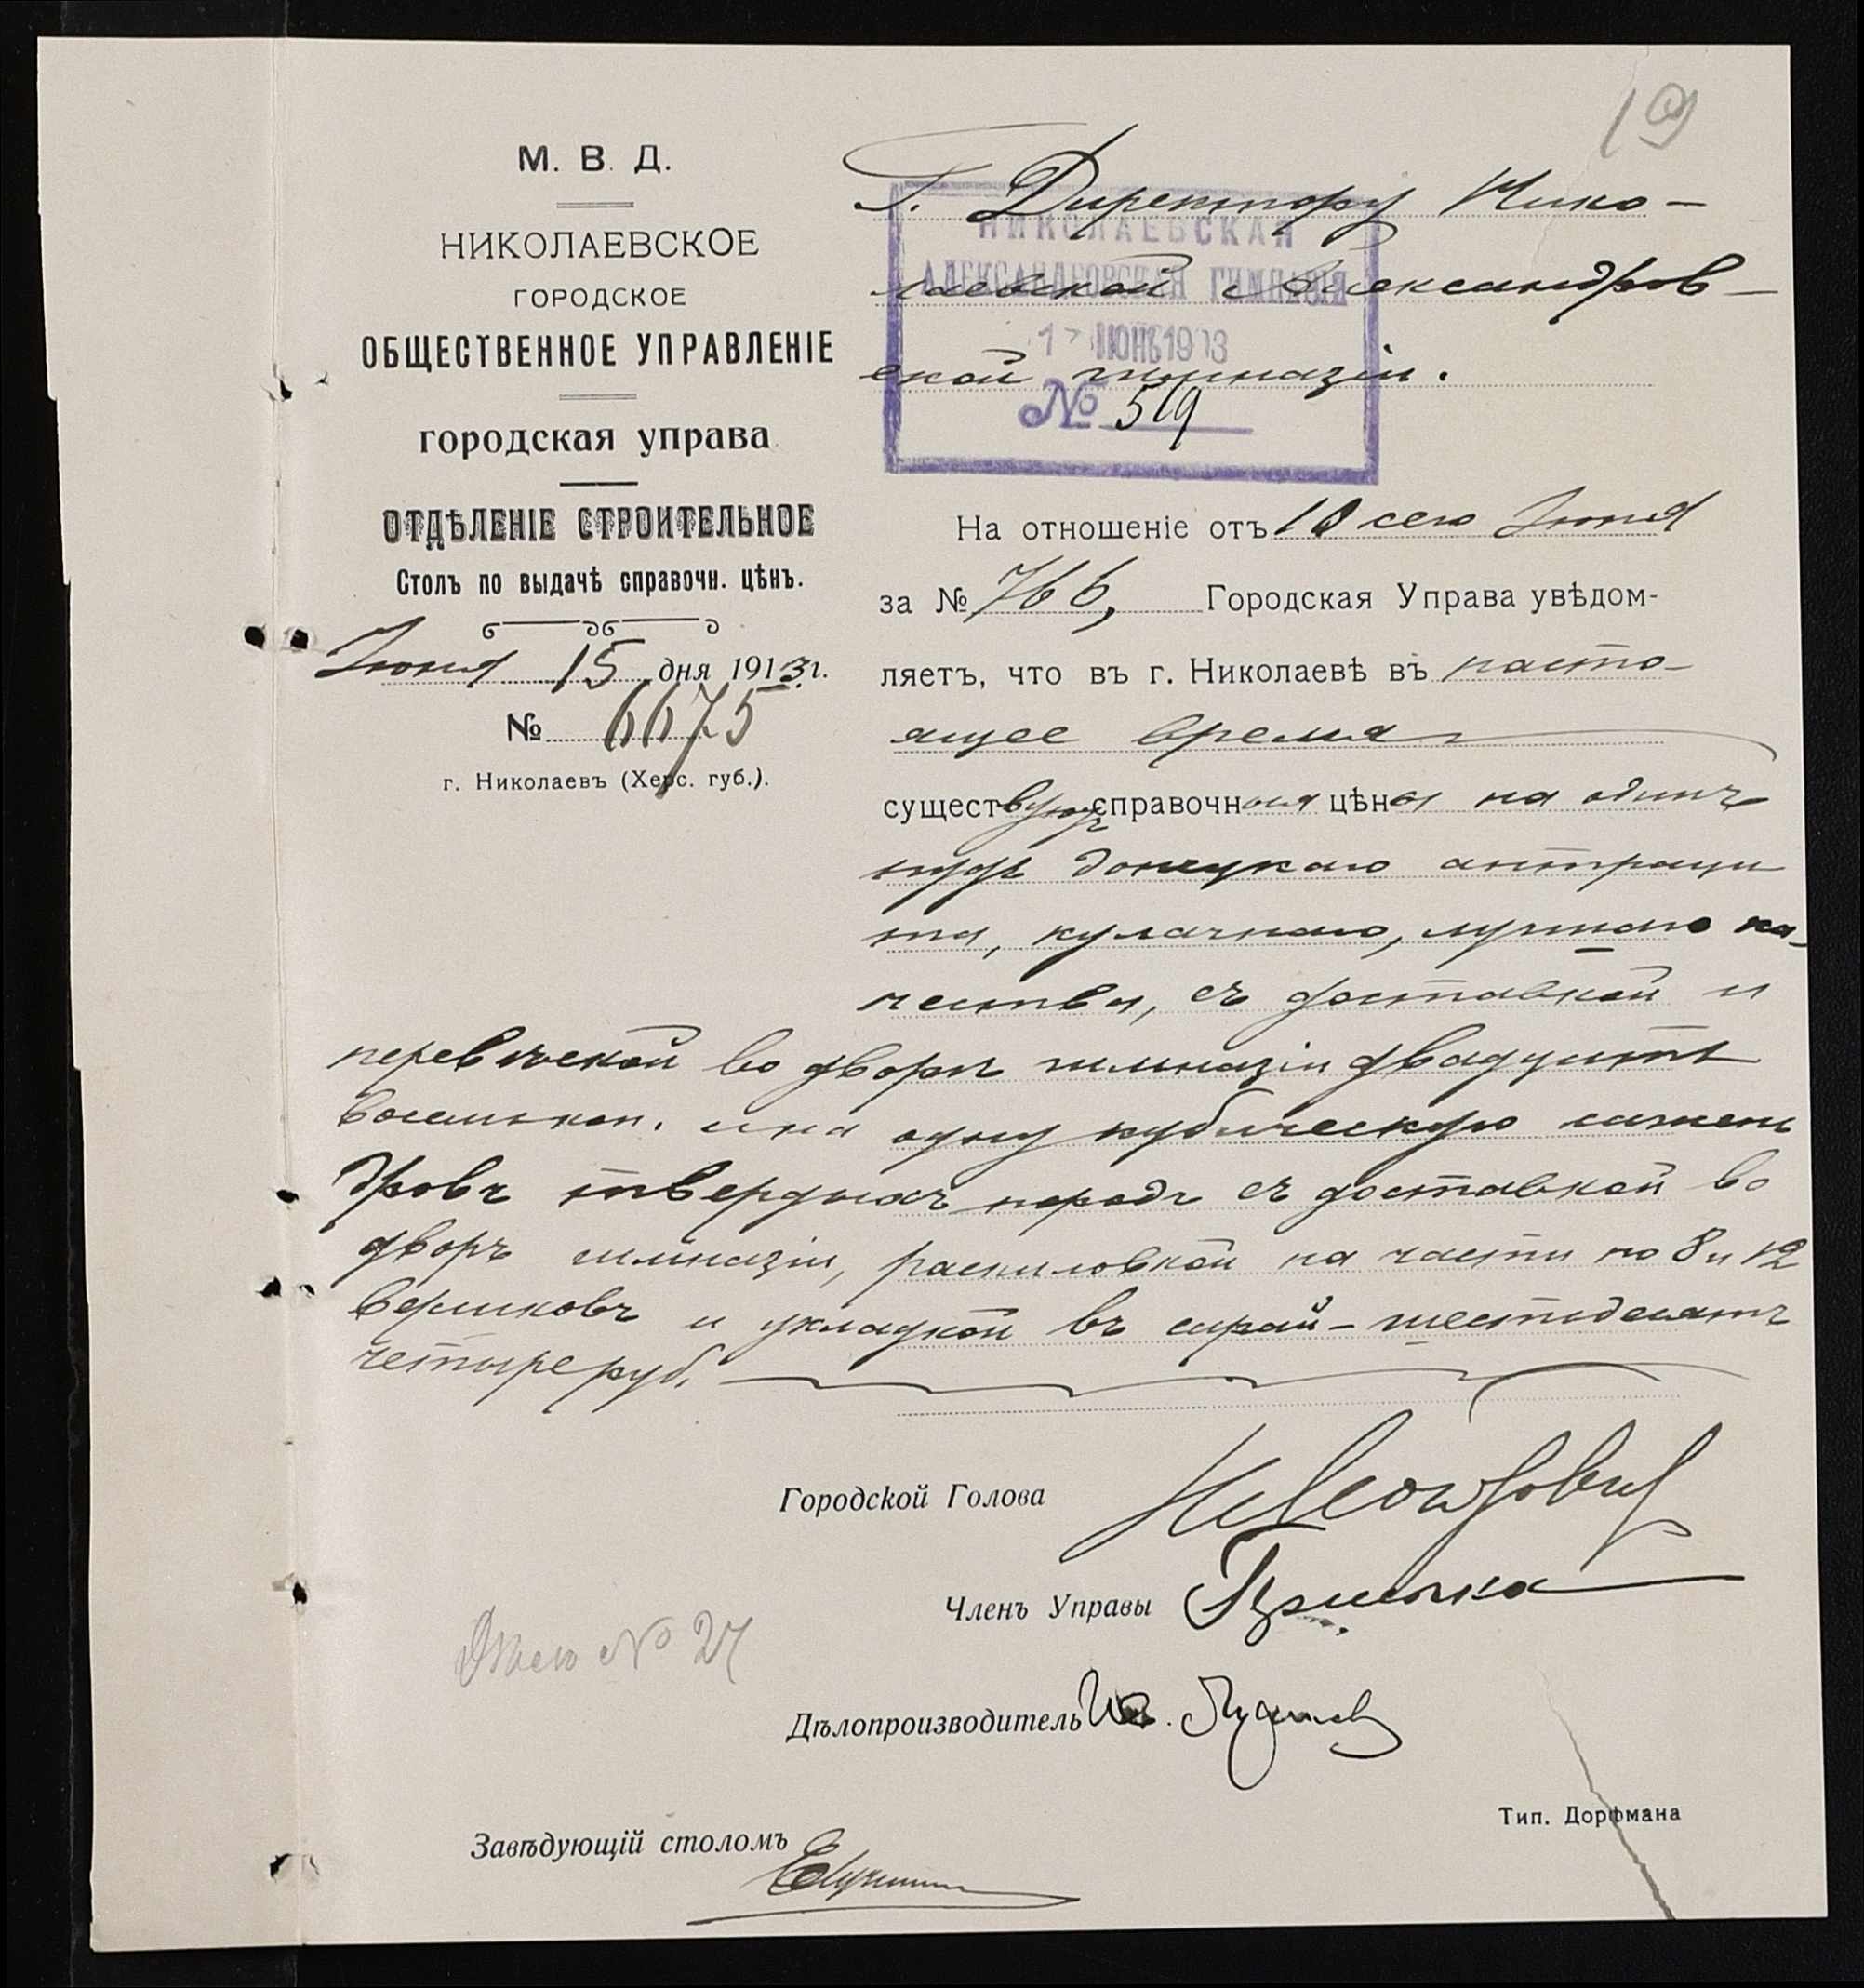 19
М. В. Д.
НИКОЛАЕВСКОЕ
ГОРОДСКОЕ
ОБЩЕСТВЕННОЕ УПРАВЛЕНІЕ
городская управа
ОТДѢЛЕНІЕ СТРОИТЕЛЬНОЕ
Столъ по выдачѣ справочн. цѣнъ.
Іюня 15 дня 1913 г.
№ 6675
г. Николаевъ (Херс. губ.).
Г. Директору Нико-
лаевской Александров-
ской гимназіи.
НИКОЛАЕВСКАЯ
АЛЕКСАНДРОВСКАЯ ГИМНАЗІЯ
17 ІЮН 1913
№ 519
На отношеніе отъ 10 сего Іюня
за № 766, Городская Управа увѣдом-
ляетъ, что въ г. Николаевѣ въ насто-
ящее время
существуютъ справочныя цѣны на одинъ
пудъ донецкаго антраци
та, кулачнаго, лучшаго ка-
чества, съ доставкой и
перевѣской во дворѣ гимназіи двадцать
восемь коп. и на одну кубическую сажень
дровъ твердыхъ породъ съ доставкой во
дворъ гимназіи, распиловкой на части по 8 и 12
вершковъ и укладкой въ сарай - шестьдесятъ
четыре руб.
Городской Голова Н Леонтовичъ
Членъ Управы
Дѣло № 27
Дѣлопроизводитель Ив.
Завѣдующій столомъ
Тип. Дорфмана